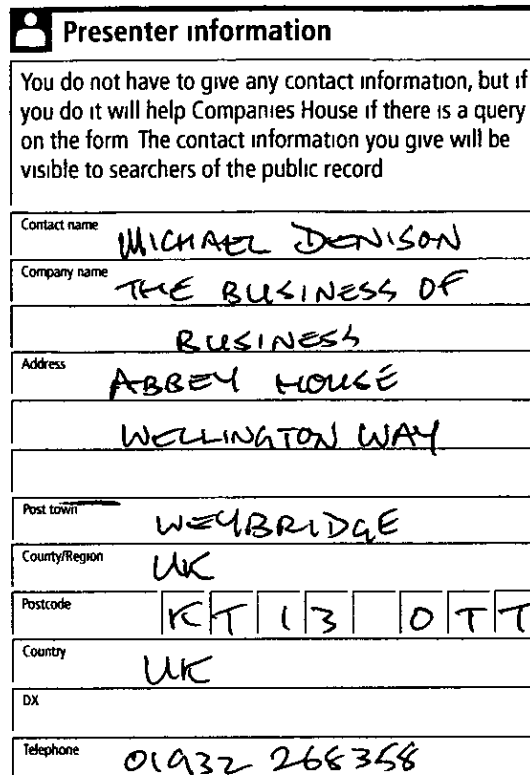 Presenter information
You do not have to give any contact information, but if
you do it will help Companies House if there is a query
on the form The contact information you give will be
visible to searchers of the public record
Contact name MICHAEL DENISON
Company name THE BUSINESS OF
BUSINESS
Address ABBEY HOUSE
WELLINGTON WAY
Post town WEYBRIDGE
County/Region UK
Postcode KT13 0TT
Country UK
DX
Telephone 01932 268358